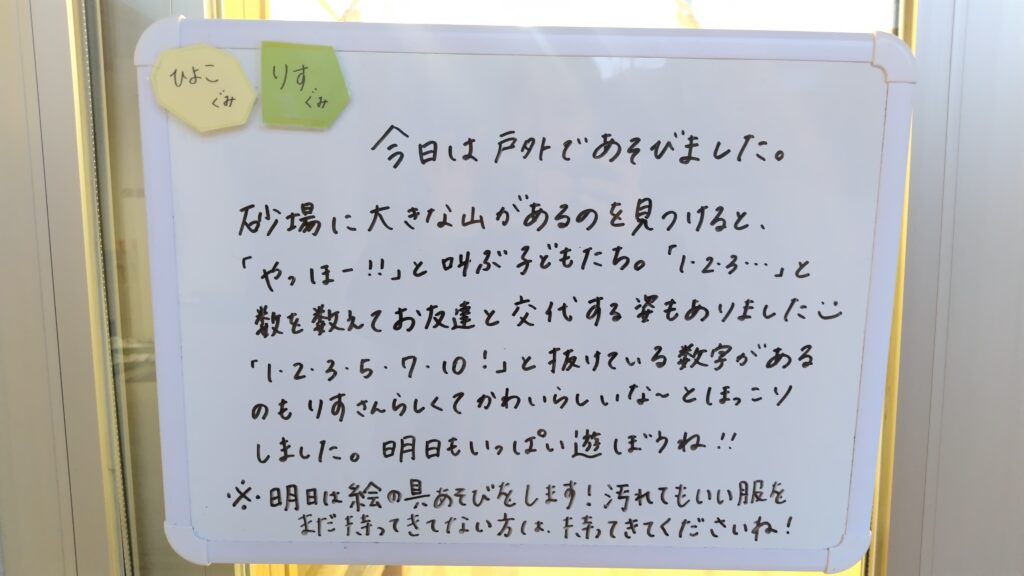 ひよこ
ぐみ
りす
ぐみ
今日は戸外であそびました。
砂場に大きな山があるのを見つけると、
「やっほー!!」と叫ぶ子どもたち。「1・2・3…」と
数を数えてお友達と交代する姿もありました
「1・2・3・5・7・10!」と抜けている数字がある
のもりすさんらしくてかわいらしいな〜とほっこり
しました。明日もいっぱい遊ぼうね!!
※明日は絵の具あそびをします!汚れてもいい服を
まだ持ってきてない方は、持ってきてくださいね!